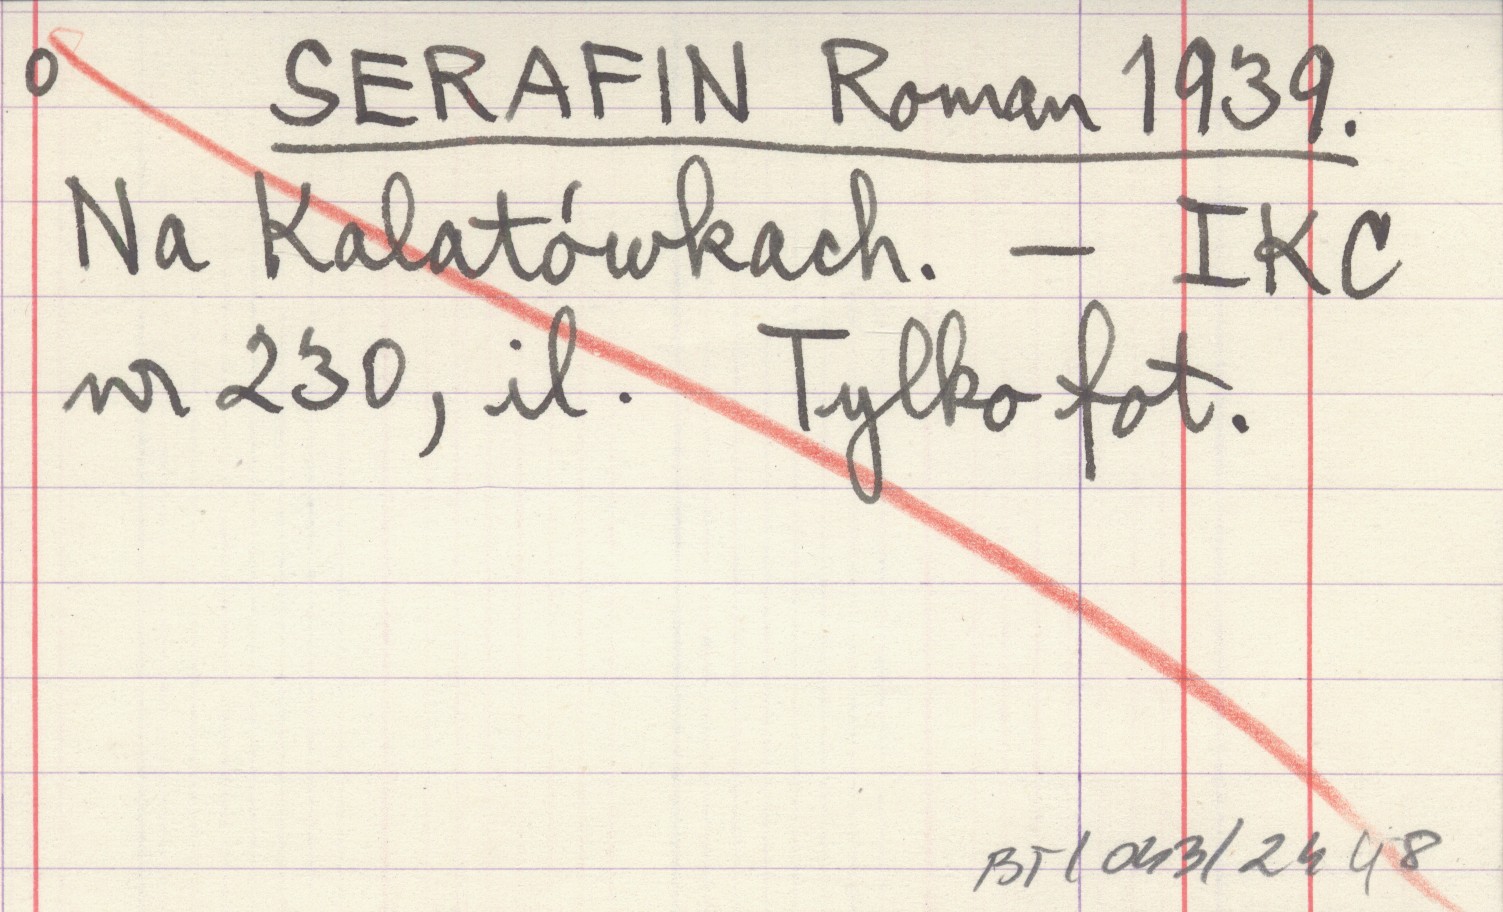 o SERAFIN Roman 1939.
Na Kalatówkach. — IKC
nr 230, il. Tylko fot.
BT/043/2448